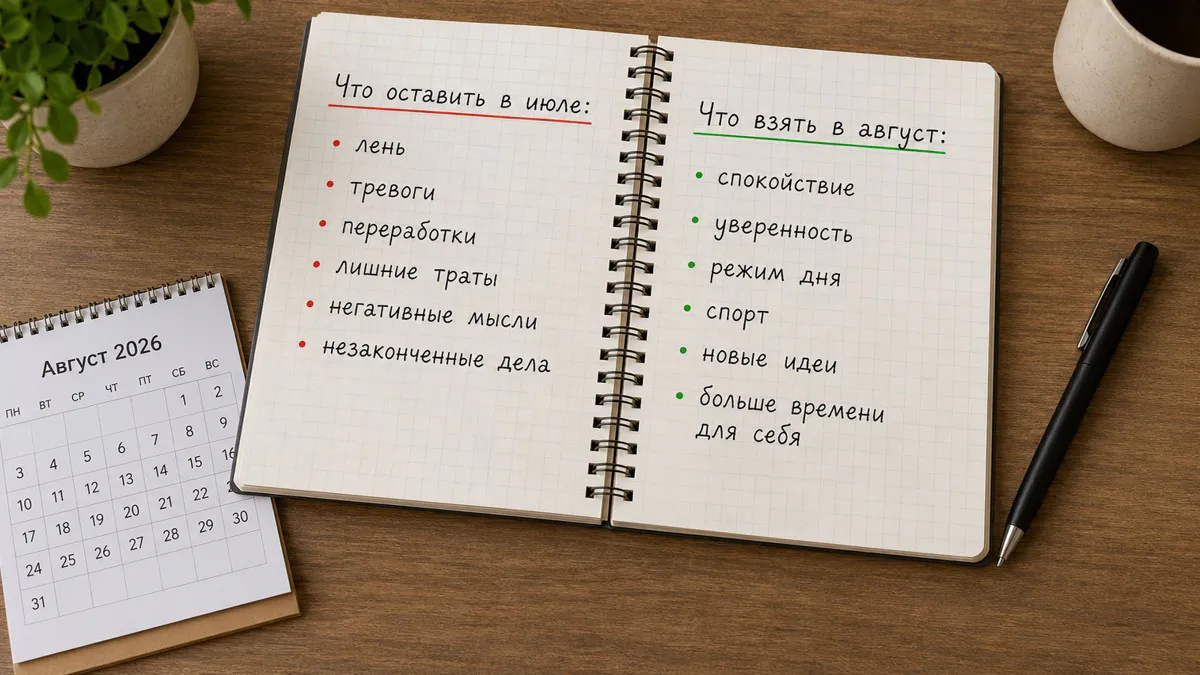 Что оставить в июле:
• лень
• тревоги
• переработки
• лишние траты
• негативные мысли
• незаконченные дела
Что взять в август:
• спокойствие
• уверенность
• режим дня
• спорт
• новые идеи
• больше времени
для себя
Август 2026
ПН ВТ СР ЧТ ПТ СБ ВС
1 2
3 4 5 6 7 8 9
10 11 12 13 14 15 16
17 18 19 20 21 22
24 25 26 27 28 29 30
31